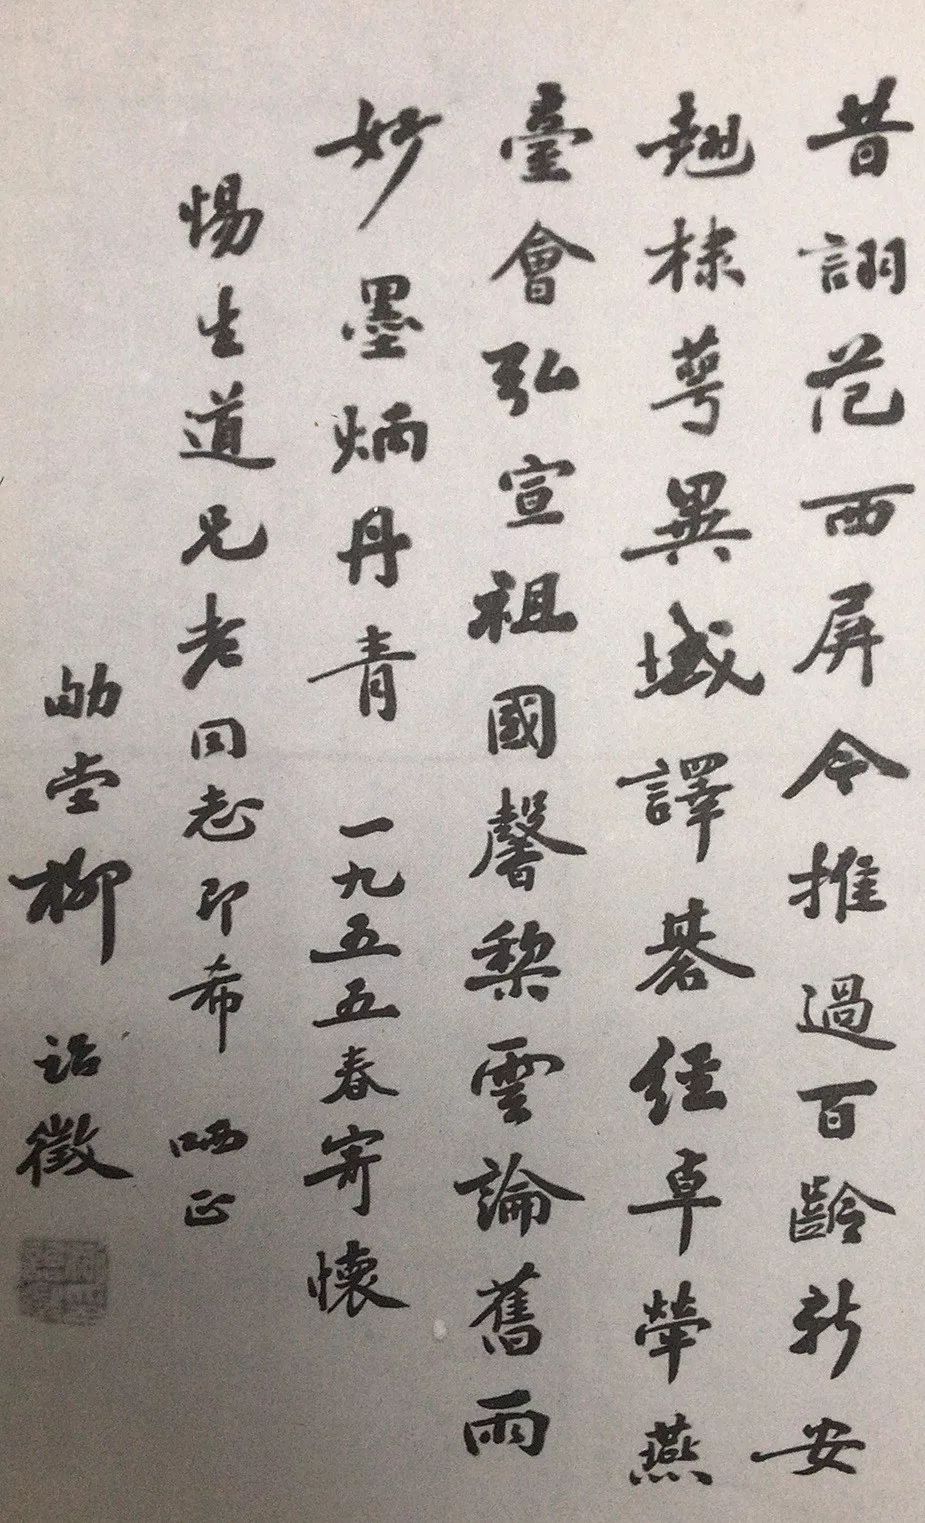 昔詡范西屏令推過百齡新安
翹棣萼異域譯碁經卓犖燕
臺會弘宣祖國馨黎雲論舊雨
妙墨炳丹青 一九五五春寄懷
惕生道兄老同志即希 哂正
劬堂柳詒徵